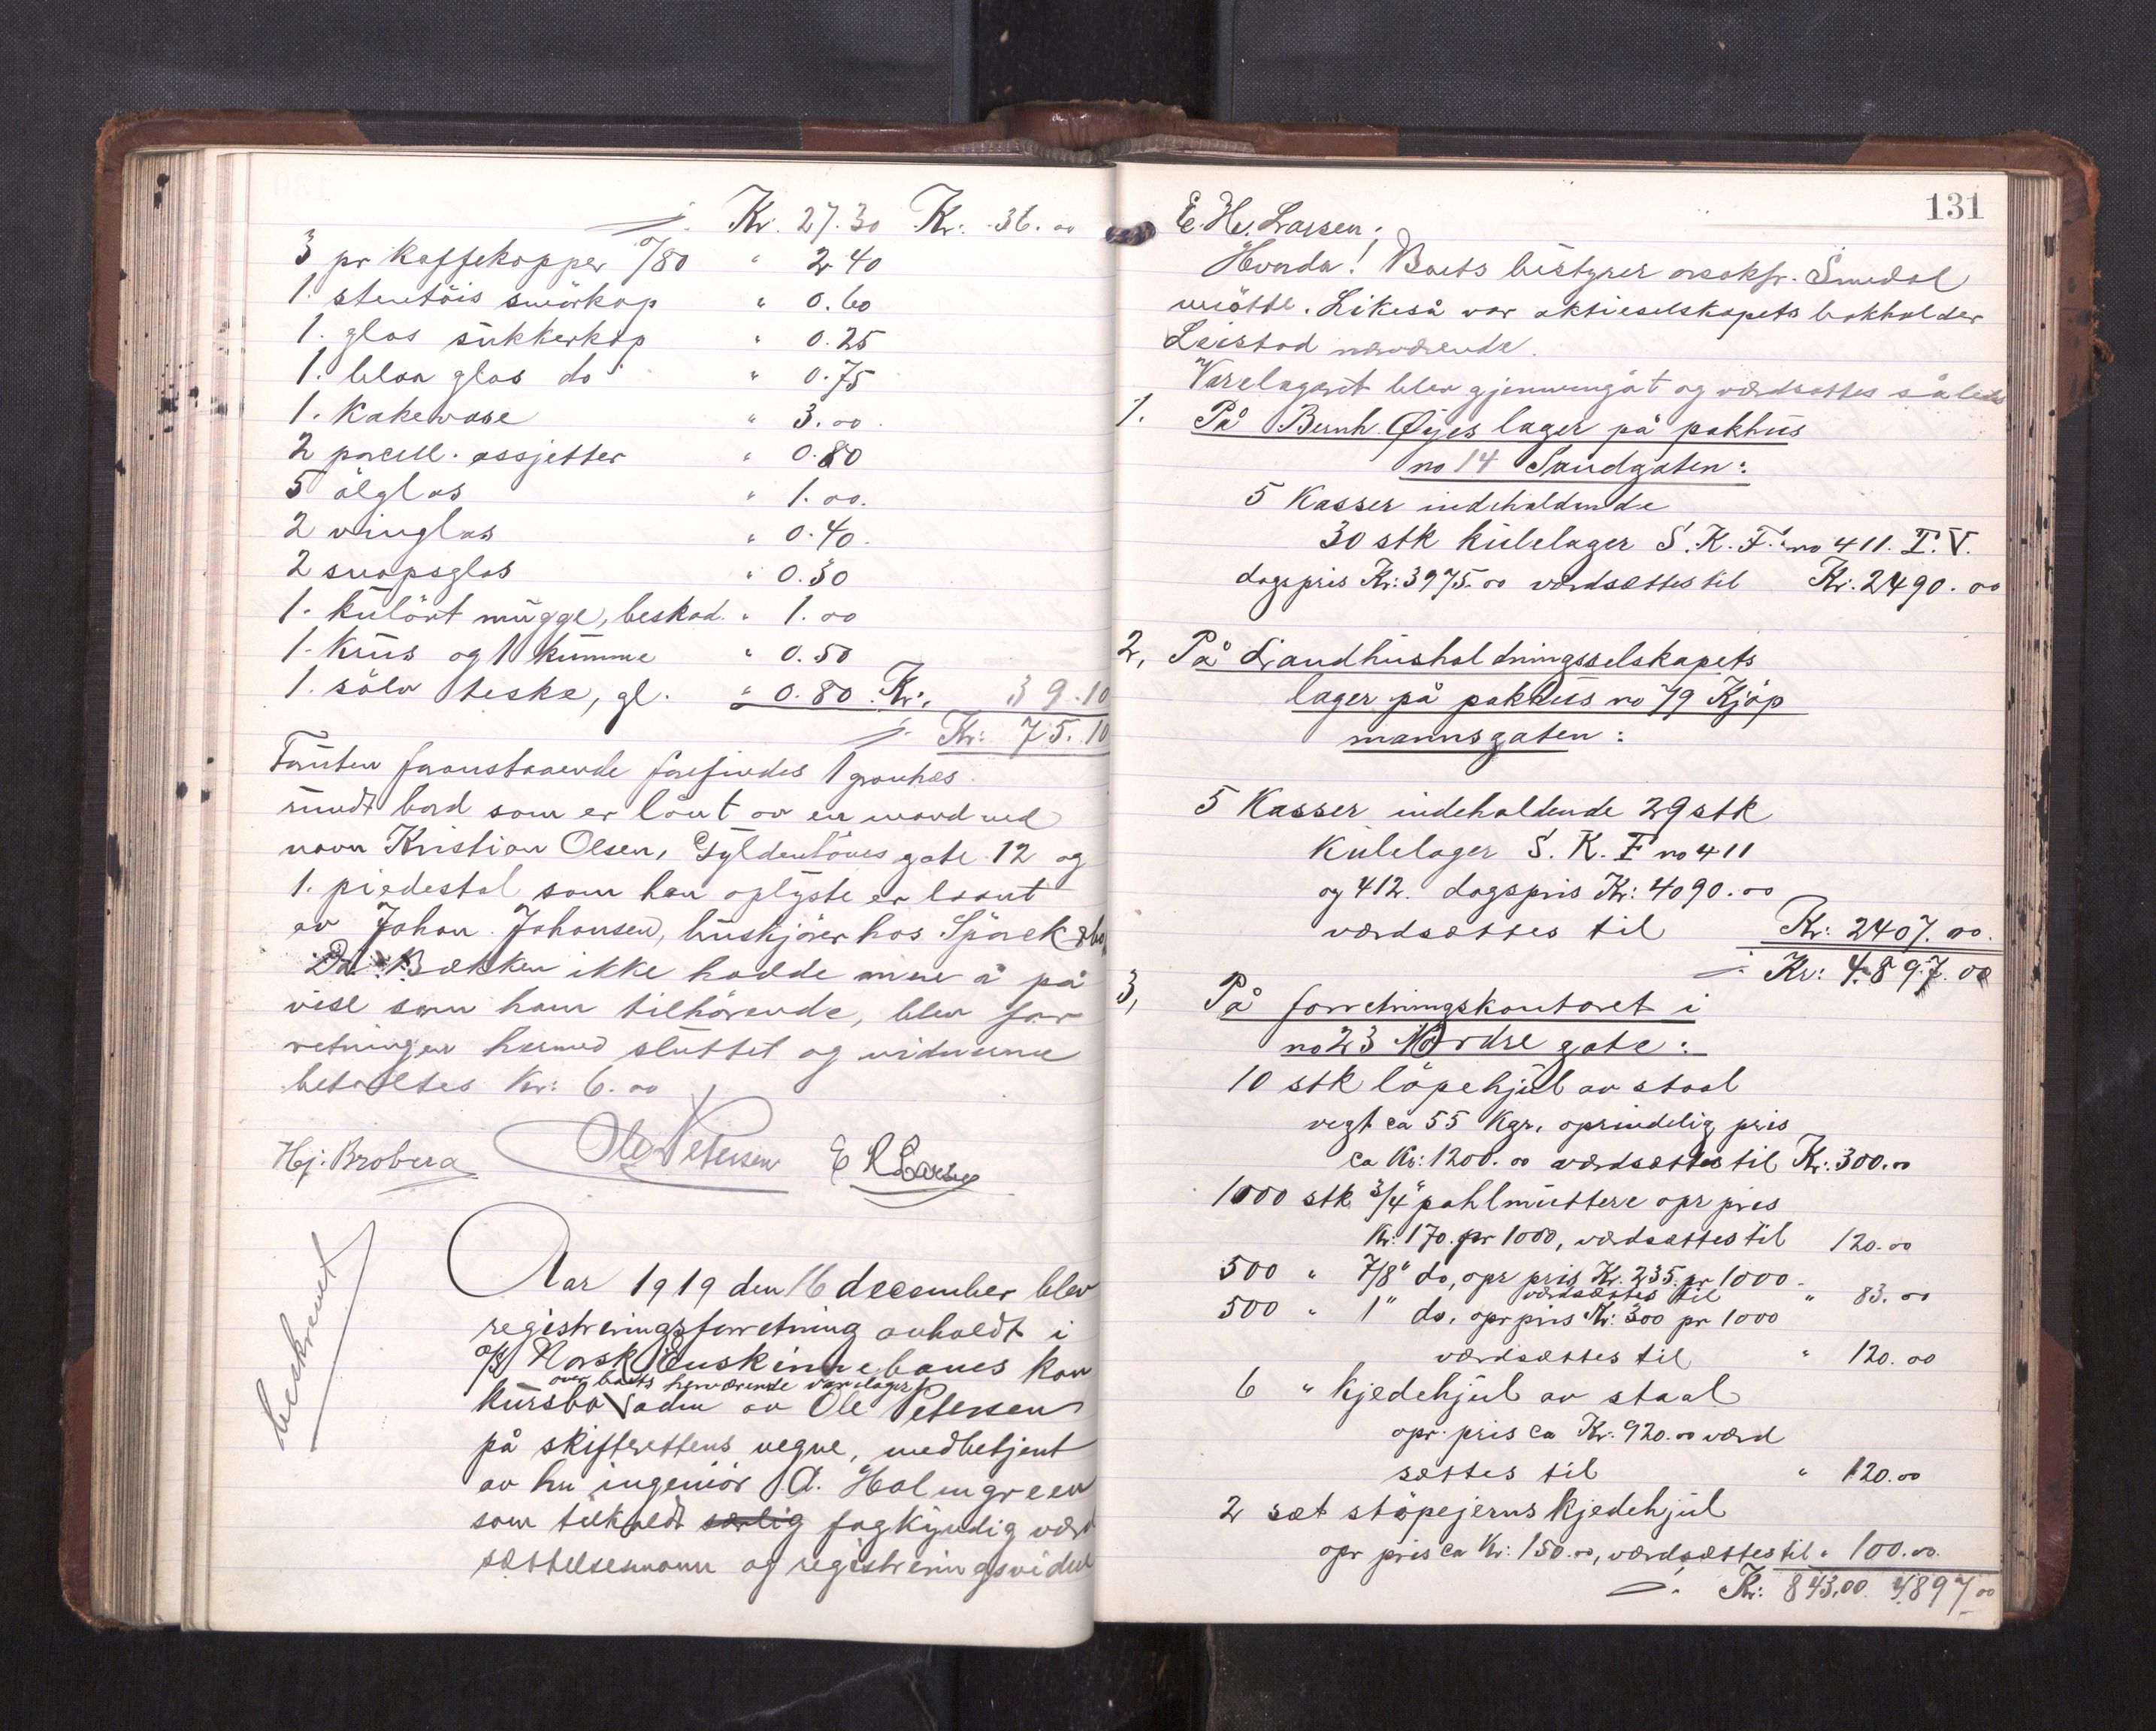 Kr. 27.30 Kr. 36.00
3 pr kaffekopper a/80 " 2.40
1. stentöis smörkop " 0.60
1. glas sukkerkop " 0.25
1. blaa glas do " 0.75
1. Kakevase " 3.00
2 porcell. assjetter " 0.80
5 ölglas " 1.00.
2 vinglas " 0.40.
2 snapsglas " 0.30
1. kulört mugge, beskad. " 1.00
1. krus og 1 kumme " 0.50
1. sölv teske, gl. " 0.80 Kr. 39.10
Kr: 75.10
Foruten foranstaaende forefindes 1
rundt bord som er lånt av en mand ved
navn Kristian Olsen, Gyldenlöves gate 12 og
1. piedestal som han oplyste er laant
av Johan Johansen, huskjörer hos
Da Bækken ikke hadde mere å på
vise som ham tilhörende, blev for
retningen hermed sluttet og vidnerne
betaltes Kr: 6.00
Hj. Broberg Ole Petersen E H Larsen
beskrevet
Aar 1919 den 16 december blev
registreringsforretning avholdt i
A/S Norsk Enskinnebanes kon
over boets herværende varelager
kursbo adm av Ole Petersen
på skifterettens vegne, medbetjent
av hr ingeniör A. Holmgreen
som tilkaldt særlig fagkyndig værd
sættelsesmann og registreringsvidne
131
E. H. Larsen;
Hvorda! Boets bestyrer ovsakfr. Smedal
mötte. Likeså var aktieselskapets bokholder
Leistad nærværende.
Varelageret blev gjennemgåt og værdsattes således
1. På Bernh. Øyes lager på pakhus
no 14 Sandgaten:
5 Kasser indeholdende
30 stk kulelager S.K.F. no 411. I.V.
dagspris Kr: 3975.00 værdsættes til Kr. 2490.00
2, På Landhusholdningsselskapets
lager på pakhus no 79 Kjöp
mannsgaten:
5 Kasser indeholdende 29 stk
kulelager S.K.F no 411
og 412. dagspris Kr: 4090.00
værdsættes til Kr: 2407.00.
Kr: 4.897.00
3, På forretningskontoret i
no 23 Nordre gate:
10 stk löpehjul av staal
vegt ca 55 kgr, oprindelig pris
ca Kr: 1200.00 værdsættes til Kr. 300.00
1000 stk 3/4" pahlmuttere opr pris
Kr. 170. pr 1000, værdsættes til 120.00
500 " 7/8" do, opr pris Kr. 235. pr 1000.
værdsættes til " 83.00
500 " 1" do, opr pris Kr: 300 pr 1000
værdsættes til " 120.00
6 " kjedehjul av staal
opr. pris ca Kr. 920.00 værd
sættes til " 120.00
2 sæt stöpejerns kjedehjul
opr pris ca Kr: 150.00, værdsættes til " 100.00.
Kr: 843.00 4897.00